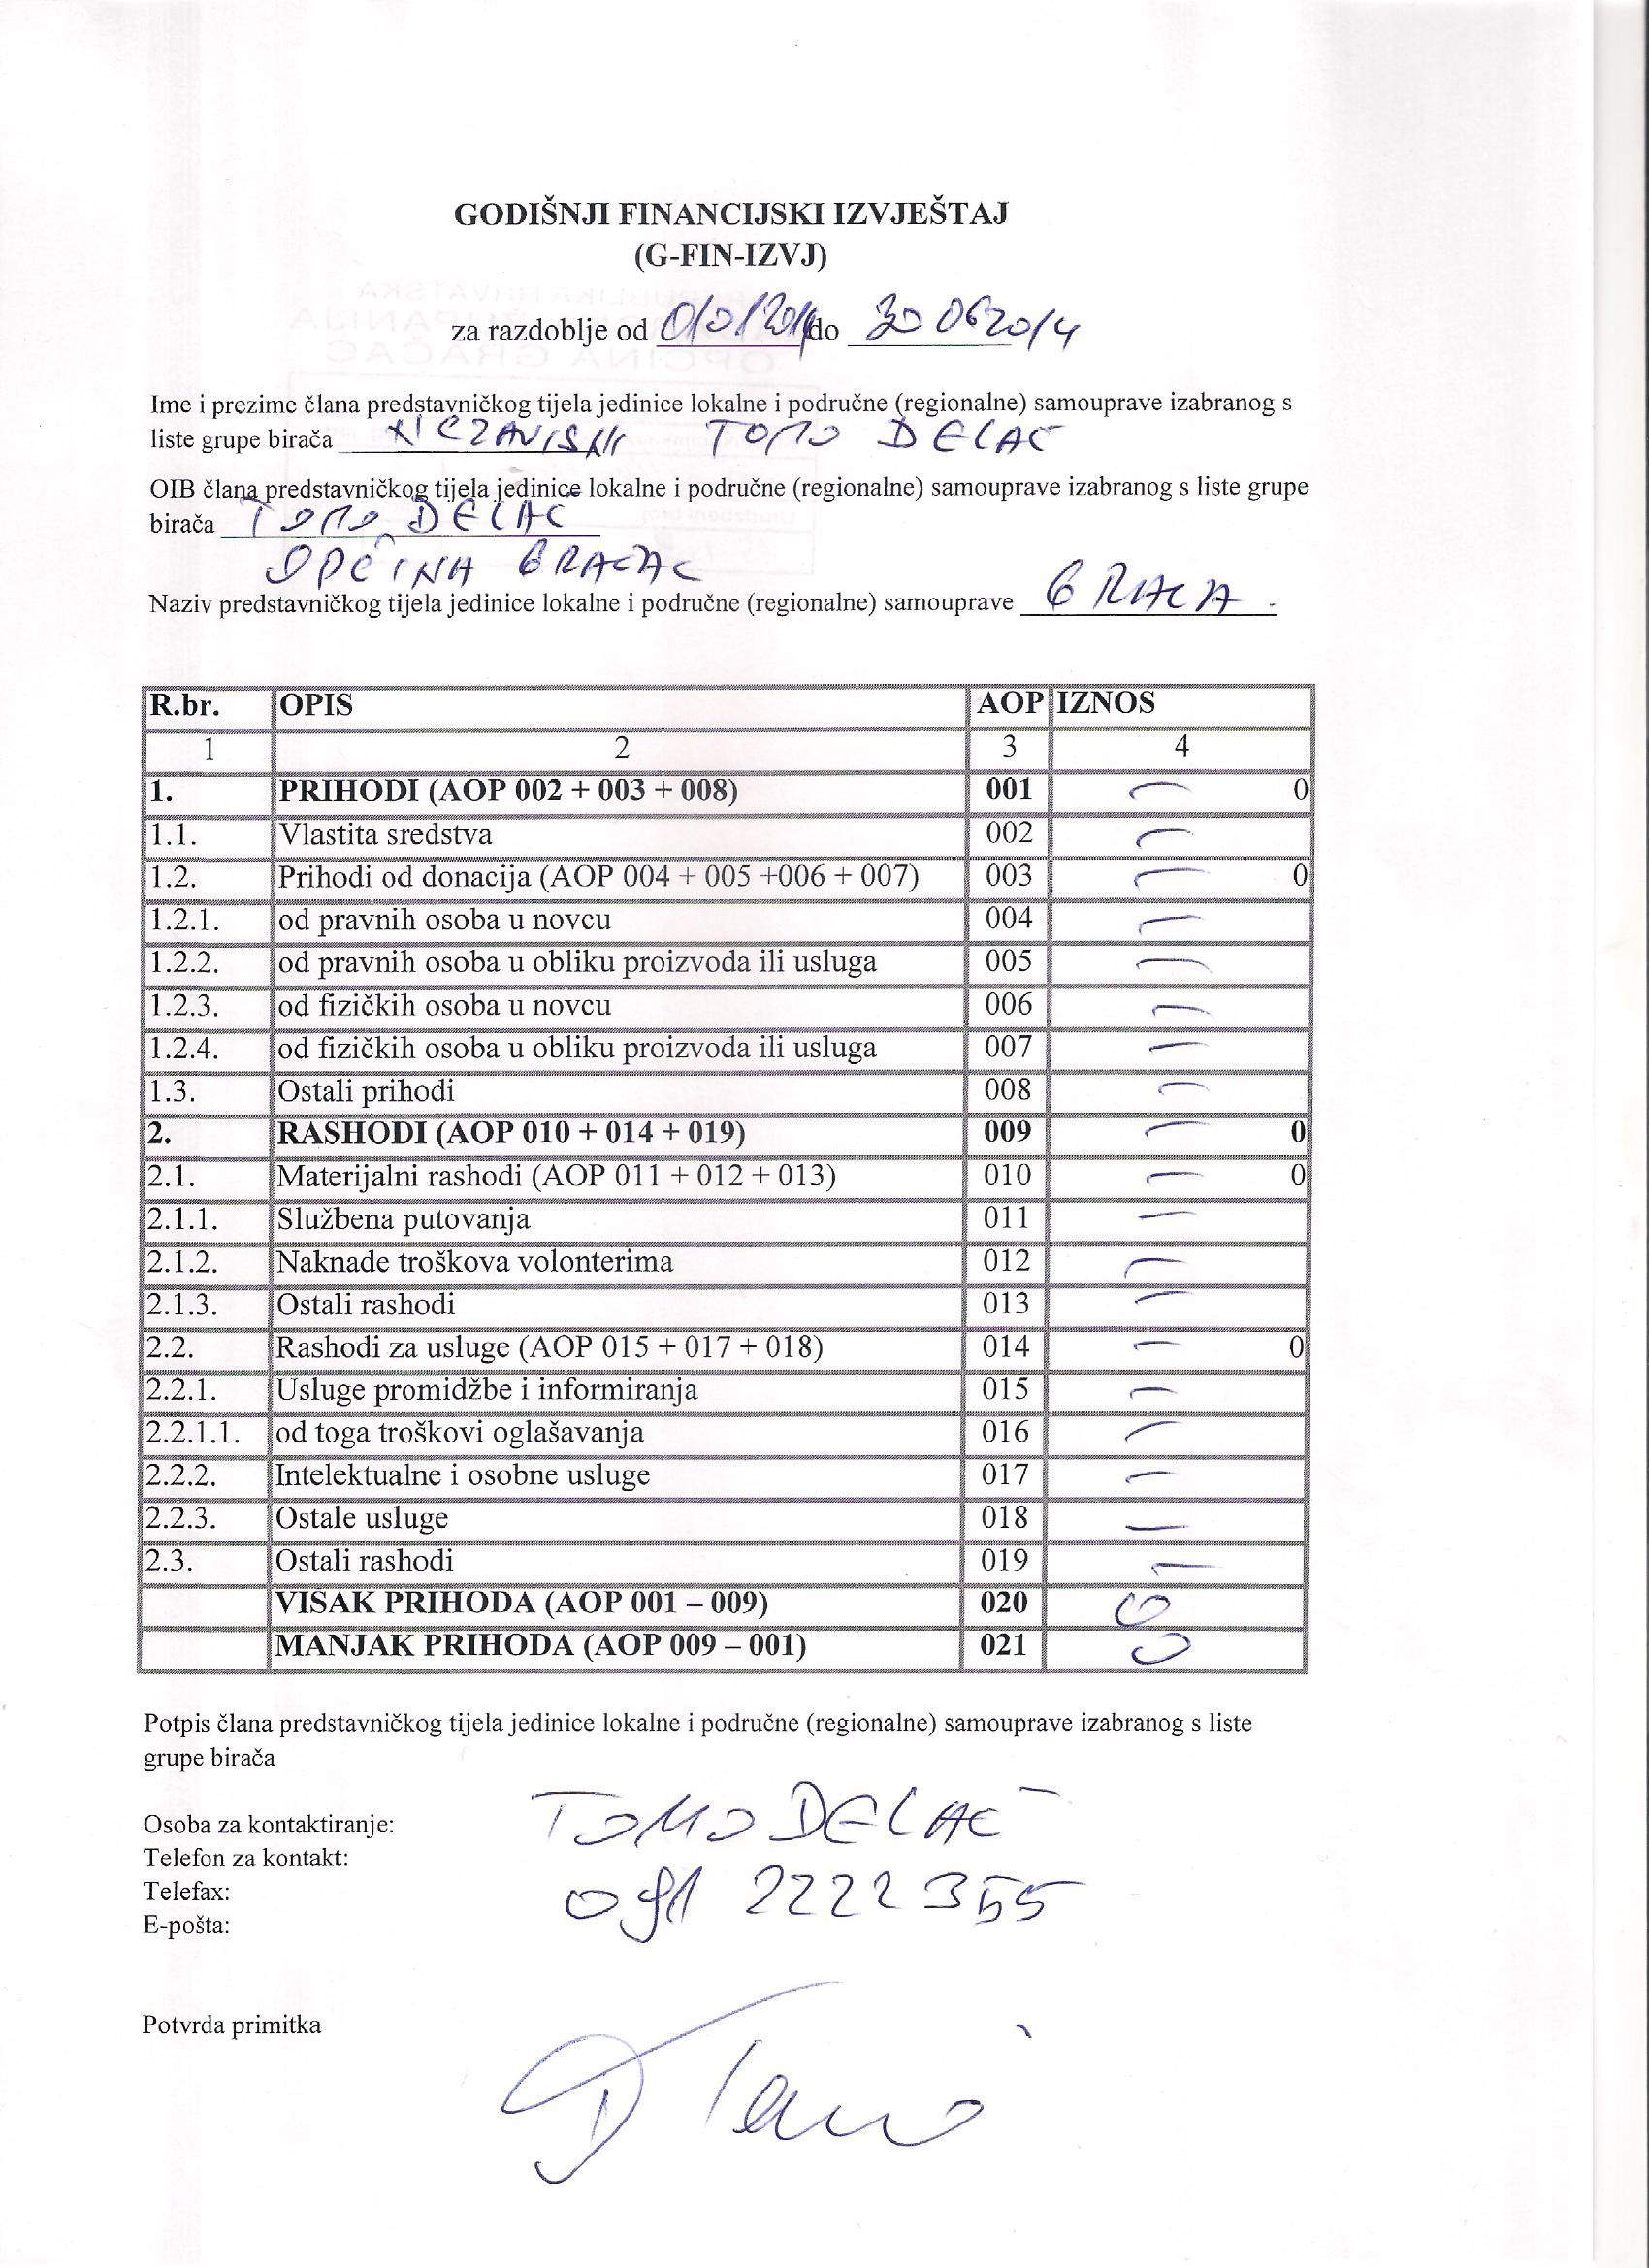 GODIŠNJI FINANCIJSKI IZVJEŠTAJ
(G-FIN-IZVJ)
za razdoblje od 01012014 do 30 06 2014
Ime i prezime člana predstavničkog tijela jedinice lokalne i područne (regionalne) samouprave izabranog s
liste grupe birača TOMO DELAČ
OIB člana predstavničkog tijela jedinice lokalne i područne (regionalne) samouprave izabranog s liste grupe
birača TOMO DELAČ
OPĆINA GRAČAC
Naziv predstavničkog tijela jedinice lokalne i područne (regionalne) samouprave
R.br. OPIS AOP IZNOS
1 2 3 4
1. PRIHODI (AOP 002 + 003 + 008) 001 — 0
1.1. Vlastita sredstva 002 —
1.2. Prihodi od donacija (AOP 004 + 005 +006 + 007) 003 — 0
1.2.1. od pravnih osoba u novcu 004 —
1.2.2. od pravnih osoba u obliku proizvoda ili usluga 005 —
1.2.3. od fizičkih osoba u novcu 006 —
1.2.4. od fizičkih osoba u obliku proizvoda ili usluga 007 —
1.3. Ostali prihodi 008 —
2. RASHODI (AOP 010 + 014 + 019) 009 — 0
2.1. Materijalni rashodi (AOP 011 + 012 + 013) 010 — 0
2.1.1. Službena putovanja 011 —
2.1.2. Naknade troškova volonterima 012 —
2.1.3. Ostali rashodi 013 —
2.2. Rashodi za usluge (AOP 015 + 017 + 018) 014 — 0
2.2.1. Usluge promidžbe i informiranja 015 —
2.2.1.1. od toga troškovi oglašavanja 016 —
2.2.2. Intelektualne i osobne usluge 017 —
2.2.3. Ostale usluge 018 —
2.3. Ostali rashodi 019 —
VIŠAK PRIHODA (AOP 001 – 009) 020 0
MANJAK PRIHODA (AOP 009 – 001) 021 0
Potpis člana predstavničkog tijela jedinice lokalne i područne (regionalne) samouprave izabranog s liste
grupe birača
Osoba za kontaktiranje: TOMO DELAČ
Telefon za kontakt:
Telefax: 091 2222 355
E-pošta:
Potvrda primitka